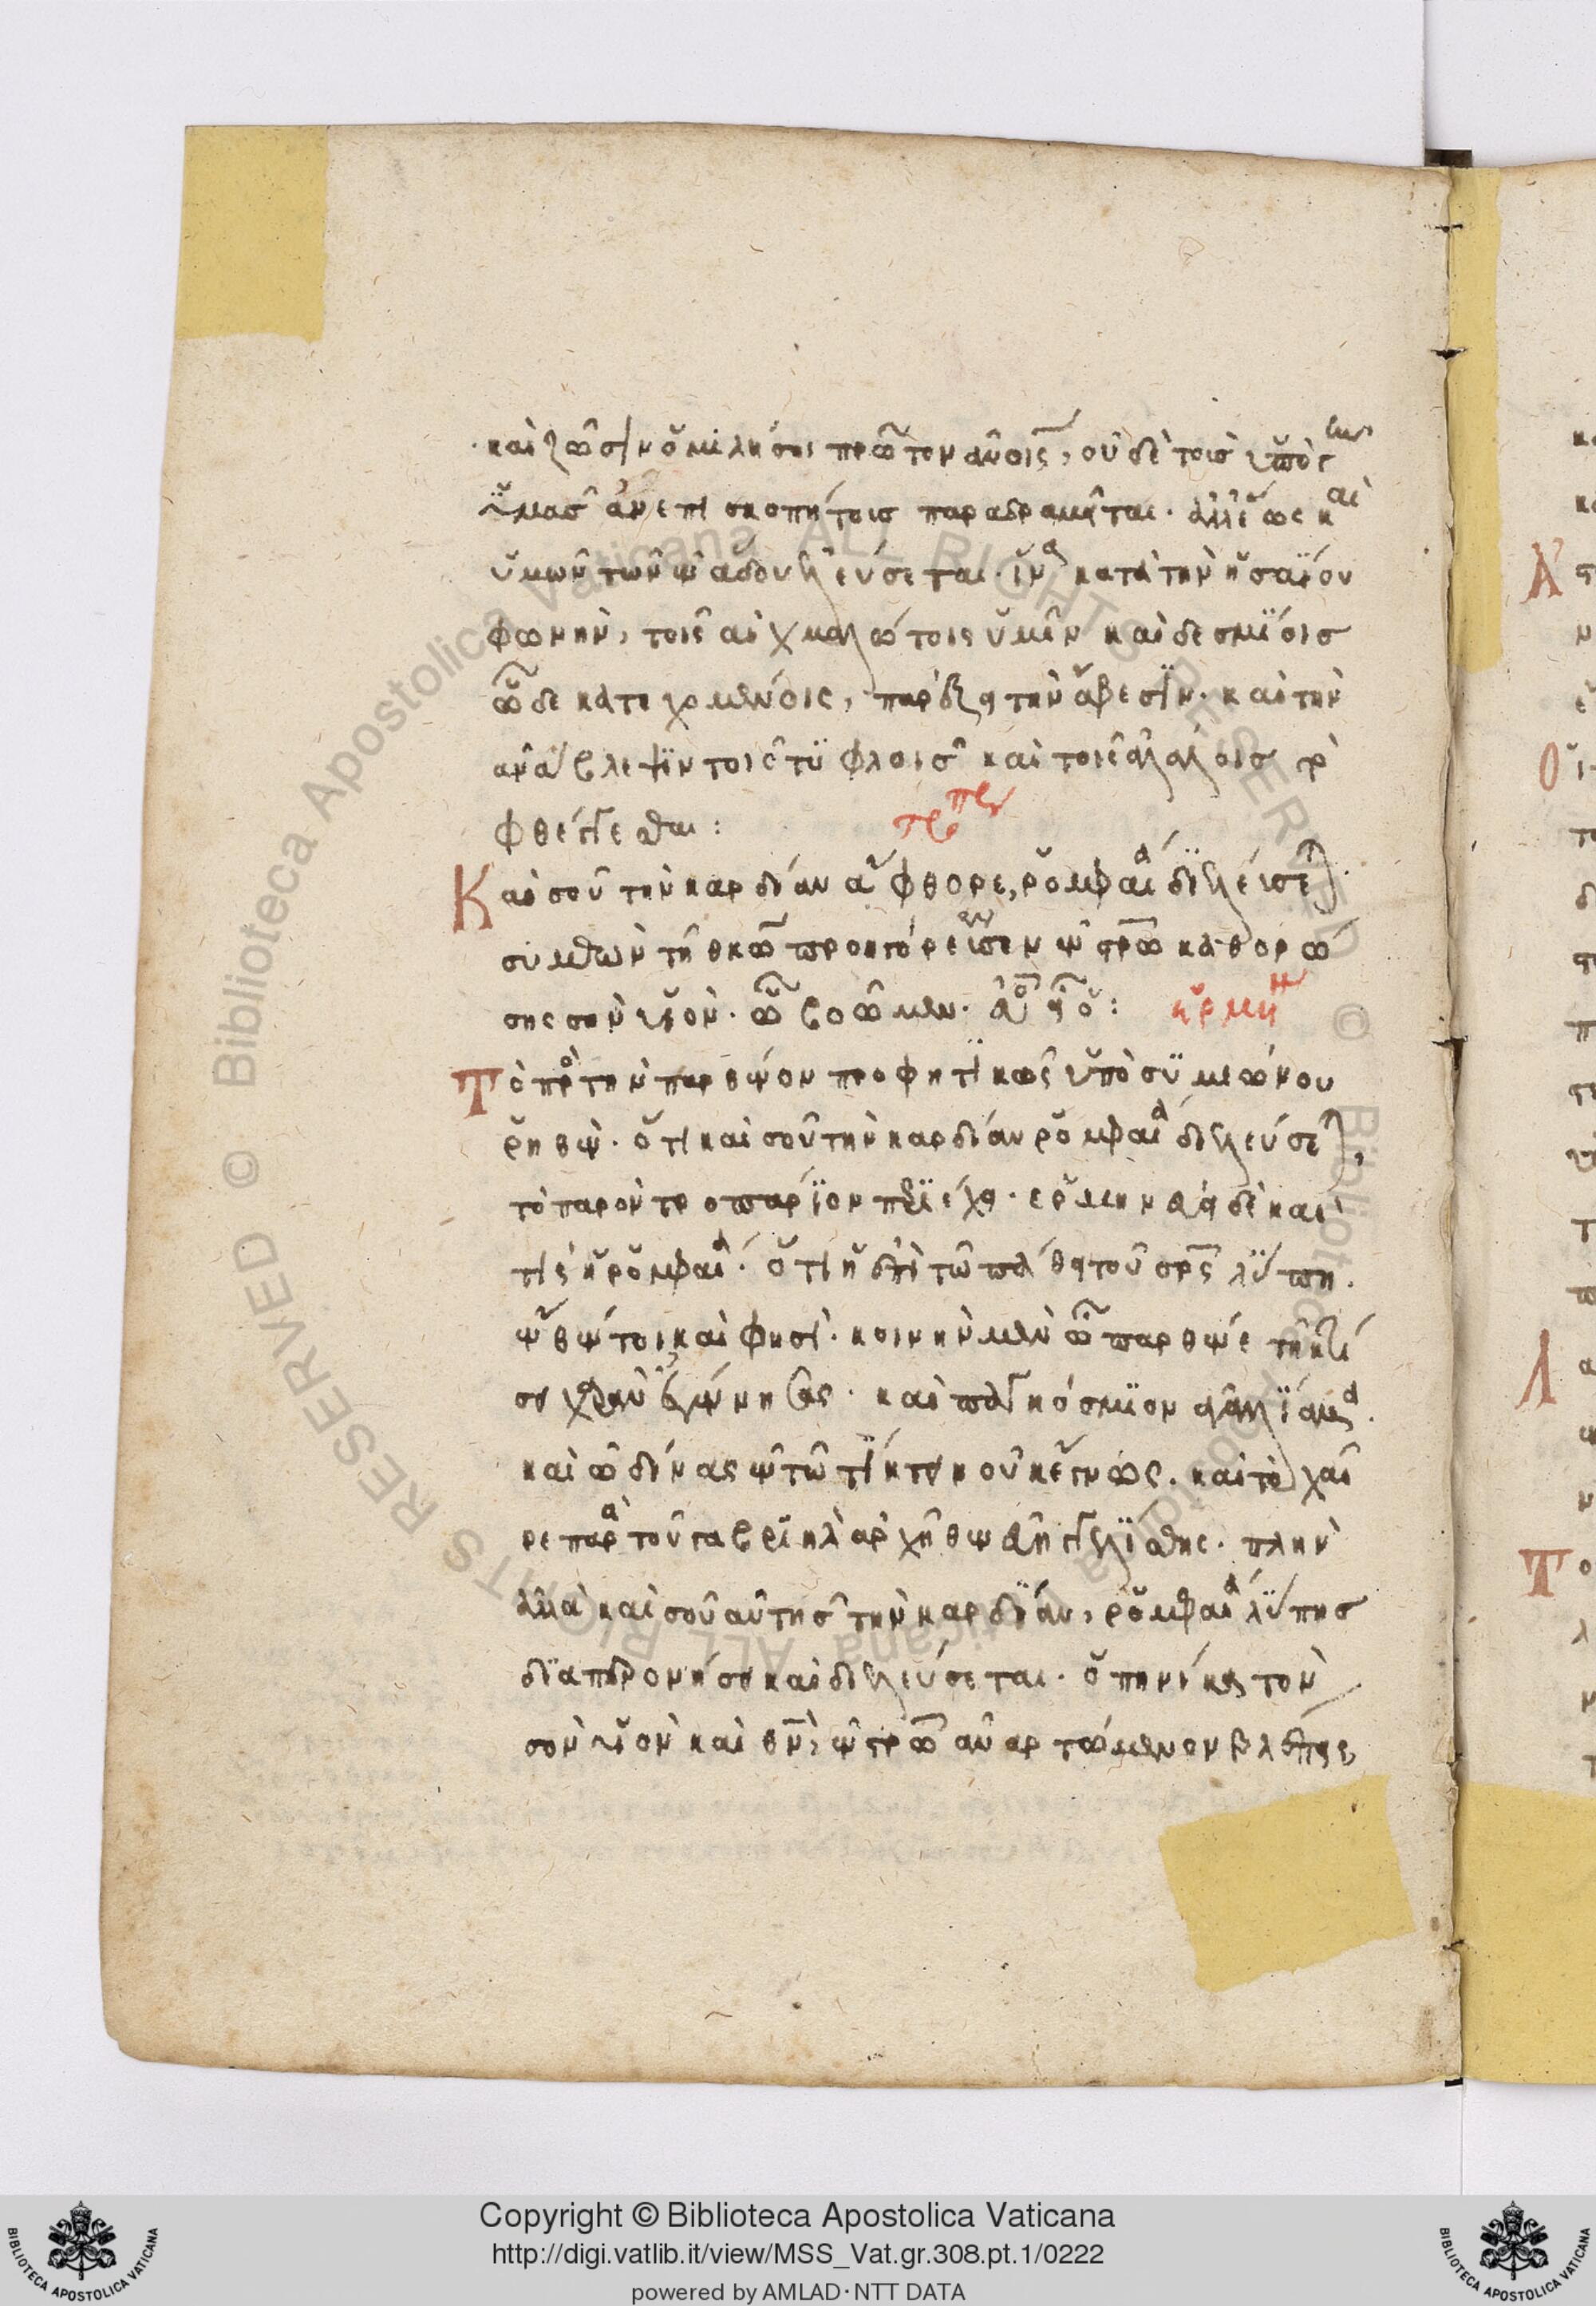 καὶ ζῶσιν ὁμιλήσει πρῶτον αὖθις, οὐδὲ τοὺς
ὑμᾶς ἀνεπισκοπήτοις παραδραμεῖται. ἀλλ' ἕως καὶ
ὑμῶν τῶν ἐν ἅδου ἐλεύσεται. ἵνα κατὰ τὴν ἡσαΐου
φωνὴν, τοῖς αἰχμαλώτοις ὑμῖν καὶ δεσμίοις
ὧδε κατεχομένοις, παρέξει τὴν ἄφεσιν. καὶ τὴν
ἀνάβλεψιν τοῖς τυφλοῖς καὶ τοῖς ἀλάλοις
φθέγγεσθαι:
Καὶ σοῦ τὴν καρδίαν ἄφθορε, ῥομφαία διελεύσεται
συμεὼν τῇ θκῶ προηγόρευσεν ἐν στρῶ καθορώ
σης σὸν υἱὸν. ὧ βοῶμεν. ἑρμη
Τὸ πρὸς τὴν παρθένον προφητικῶς ὑπὸ συμεώνου
ῥηθὲν. ὅτι καὶ σοῦ τὴν καρδίαν ῥομφαία διελεύσεται,
τὸ παρὸν τροπάριον περιέχει. ἑρμηνεύει δὲ καὶ
τίς ἡ ῥομφαία. ὅτι ἡ ἐπὶ τῶ πάθει τοῦ σρς λύπη.
ἔνθέν τοι καὶ φησὶ. κοινὴν μὲν ὦ παρθένε τῇ κτί
σει χαρὰν ἐγέννησας. καὶ παγκόσμιον ἀγαλλίαμα.
καὶ ὠδίνας ἐν τῶ τίκτειν οὐκ ἔγνως. καὶ τὸ χαῖ
ρε παρὰ τοῦ γαβριὴλ ἀρχῆθεν εὐηγγελίσθης. πλὴν
ἀλλὰ καὶ σοῦ αὐτῆς τὴν καρδίαν, ῥομφαία λύπης
διαπερονήσει καὶ διελεύσεται. ὁπηνίκα τὸν
σὸν υἱὸν καὶ θν, ἐν στρῶ ἀναρτώμενον βλέπῃς,
Copyright © Biblioteca Apostolica Vaticana
http://digi.vatlib.it/view/MSS_Vat.gr.308.pt.1/0222
powered by AMLAD·NTT DATA
BIBLIOTECA APOSTOLICA VATICANA
BIBLIOTECA APOSTOLICA VATICANA